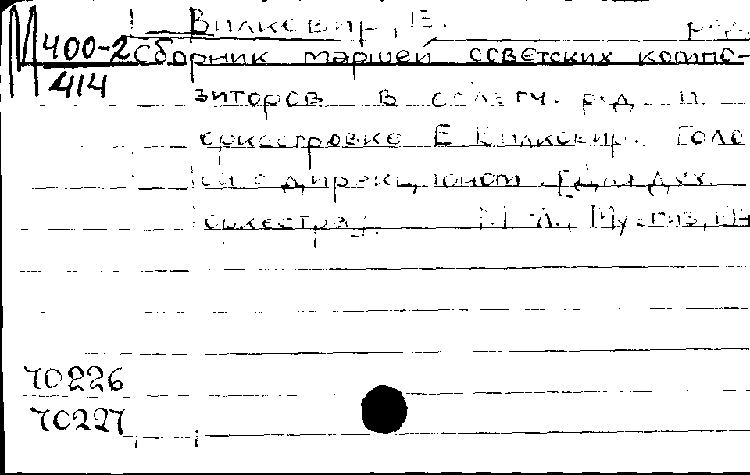 Вилковир, Е. ред.
М 400-2
414
Сборник маршей советских компо-
зиторов в облегч. ред. и
оркестровке Е. Вилковир. Голо
са с дирекционом. [Для дух.
оркестра]. М.-Л., Музгиз,
70226
70227